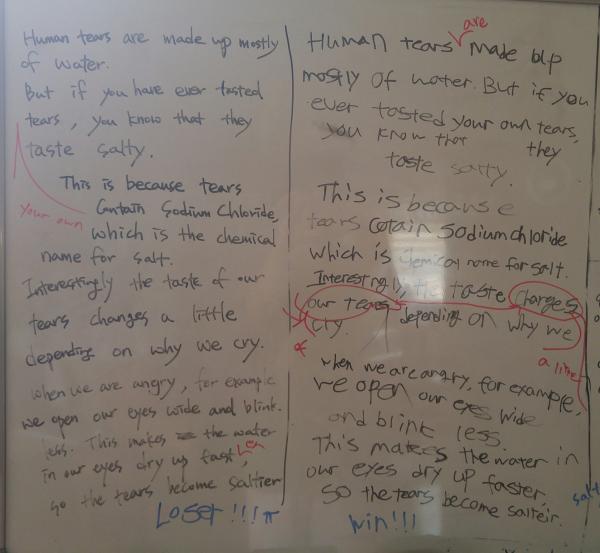 Human tears are made up mostly
of water.
But if you have ever tasted
tears, you know that they
taste salty.
your own
This is because tears
Contain Sodium Chloride,
which is the chemical
name for salt.
Interestingly the taste of our
tears changes a little
depending on why we cry.
when we are angry, for example
we open our eyes wide and blink.
less. This makes the water
in our eyes dry up fast er,
so the tears become saltier
Loser!!!
are
Human tears made up
mostly of water. But if you
ever tasted your own tears,
you know that they
taste salty.
This is because
tears cotain Sodium chloride
which is chemical name for salt.
Interestingly the taste Changes
our tears depending on why we
cry.
of
a little
when we are angry, for example,
we open our eyes wide
and blink less.
This makes the water in
our eyes dry up faster.
So the tears become salteir.
win!!!
salt